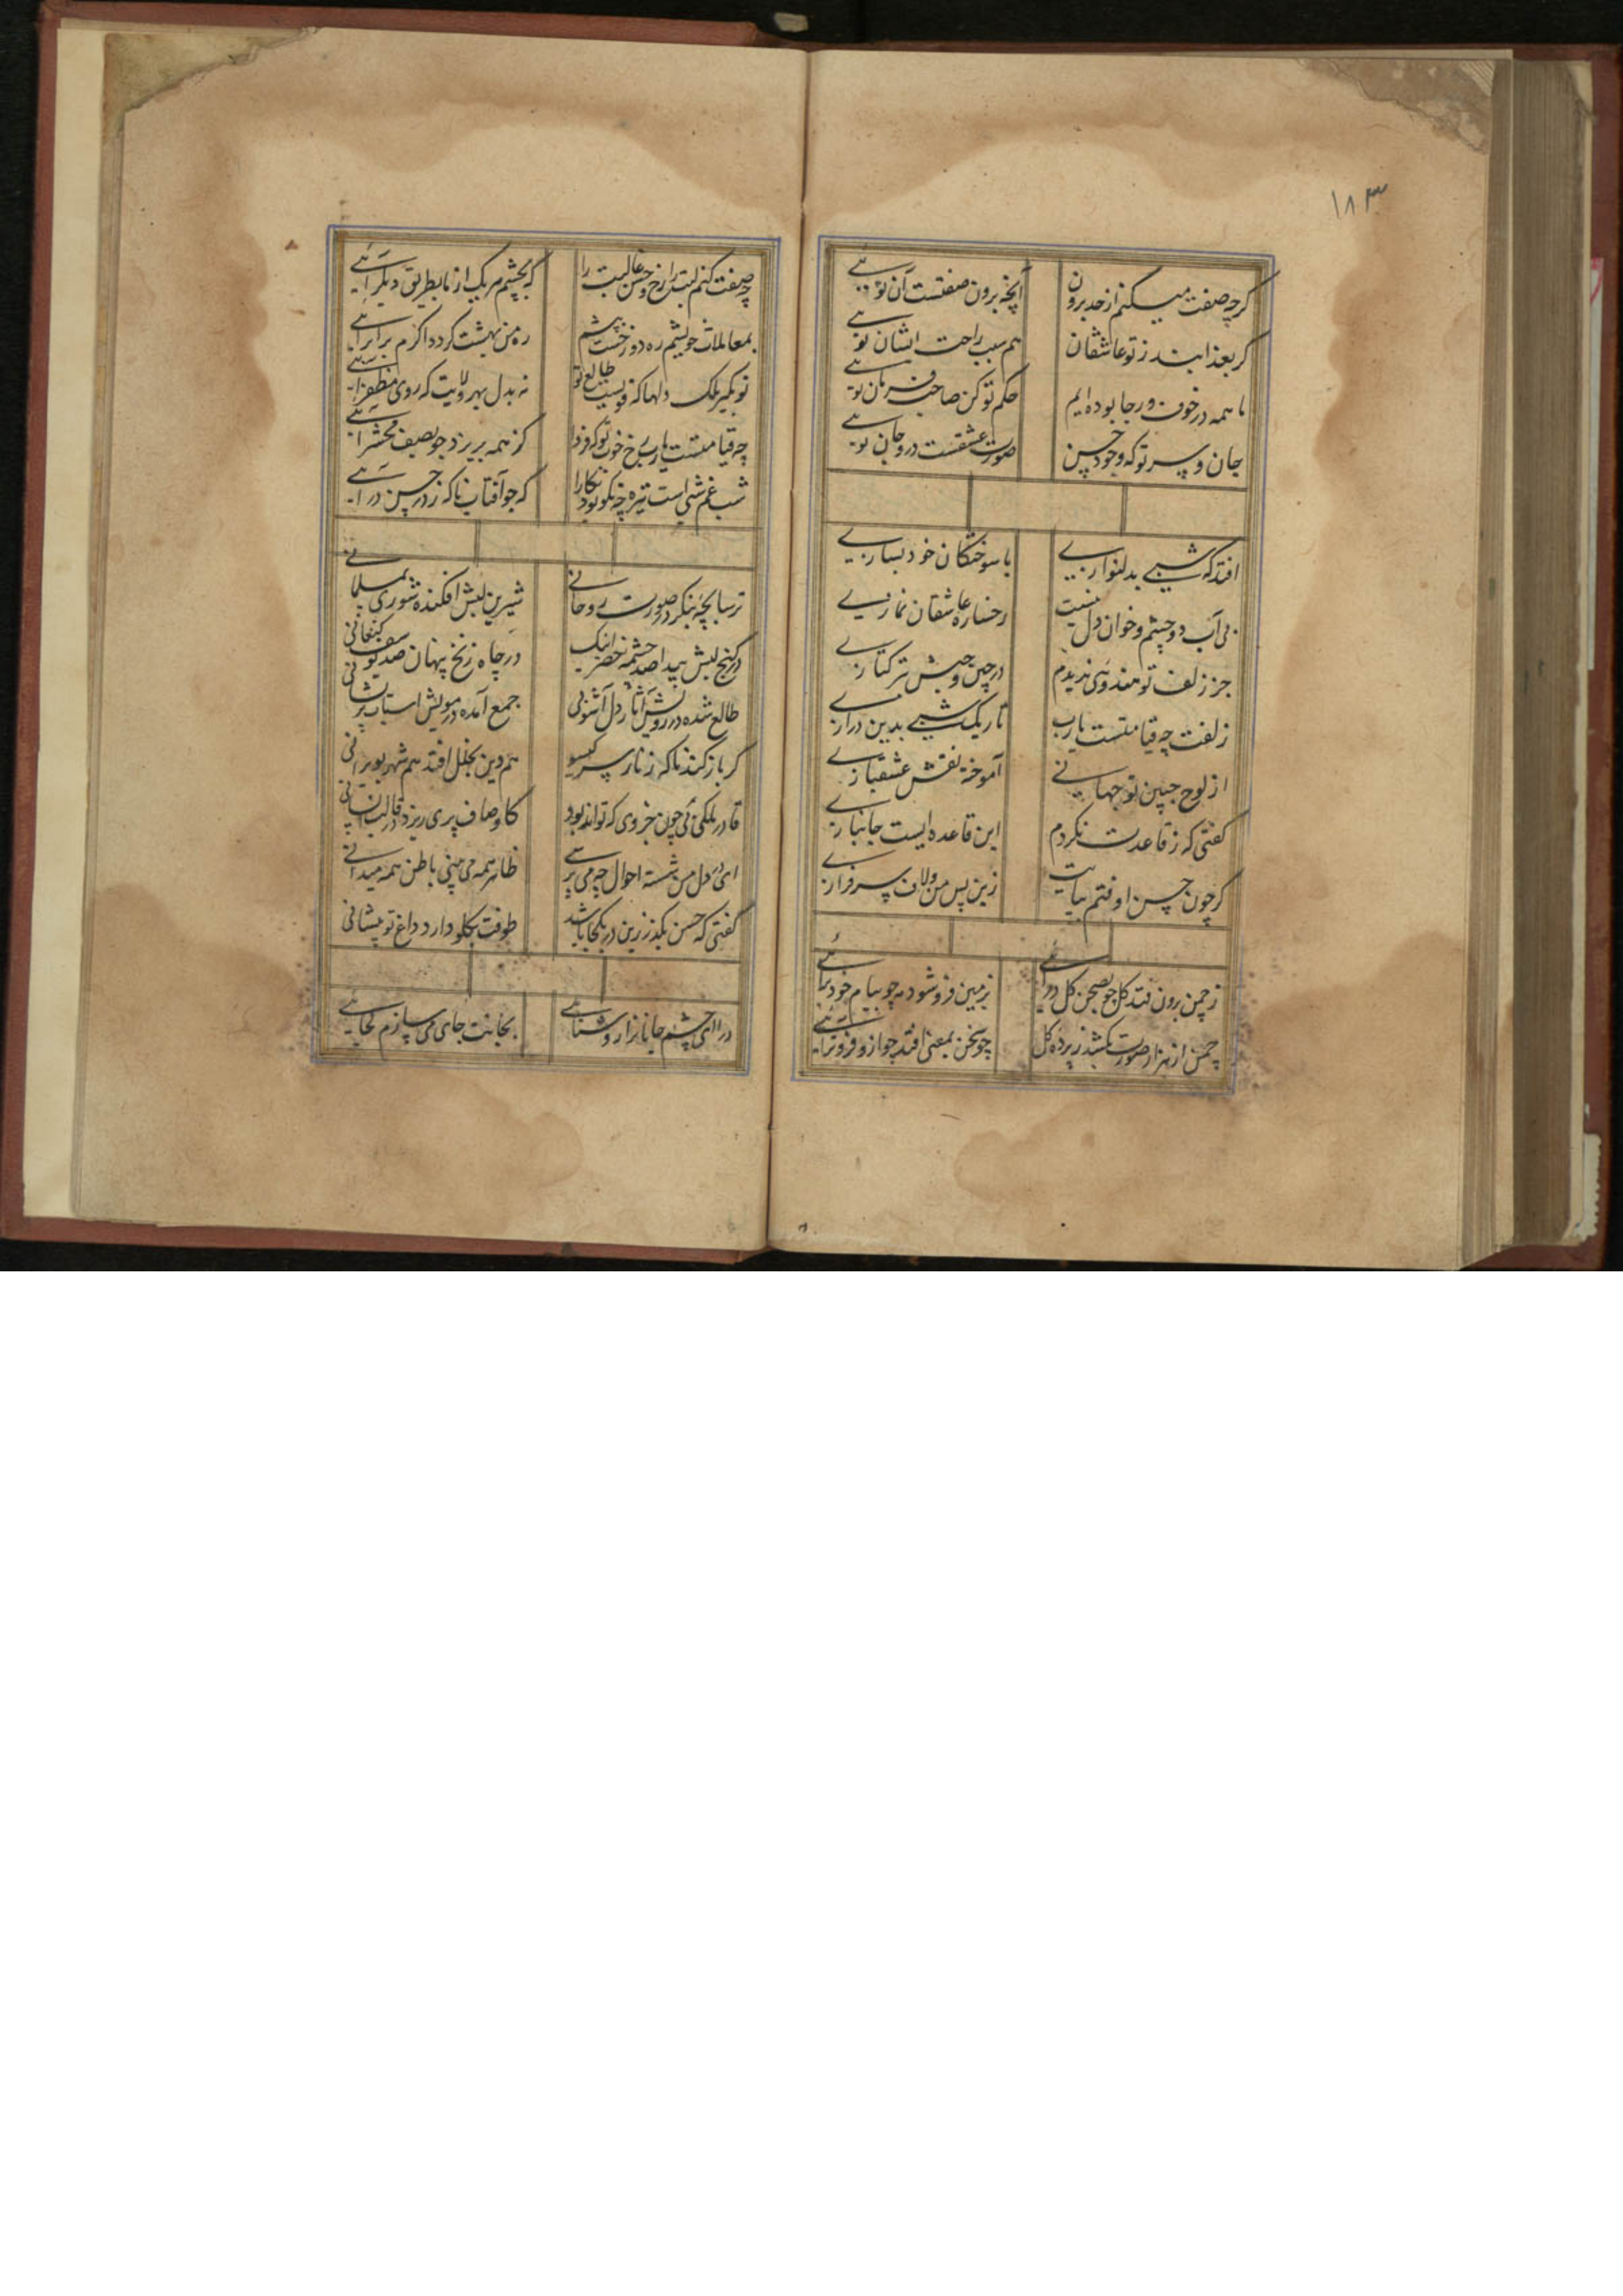 ۱۸۳
گرچه صفت میکنم از حد برون آنچه برون صفتست آن توئی
گر بعذابند ز تو عاشقان هم سبب راحت ایشان توئی
ما همه در خوف و رجا بوده ایم حکم تو کن صاحب فرمان توئی
جان و سر تو که وجود حسن صورت عشقست درو جان توئی
افتد که شبی بدلنوازی با سوختگان خود بسازی
بی آب دو چشم و خوان دل نیست رخساره عاشقان نمازی
جز زلف تو هندوئی ندیدم در چین و حبش بترکتازی
زلفت چه قیامتست یارب تاریک شبی بدین درازی
از لوح جبین تو جهانی آموخته نقش عشقبازی
گفتی که ز قاعدت نکردم این قاعده ایست جانبازی
گر چون حسن اوفتم بپایت زین پس من و لاف سرفرازی
ز چمن برون فتد گل چو بصحن گل درائی بزمین فروشود مه چو ببام خود برائی
چمن از هزار صورت بکشد ز پرده گل چو سخن بمعنی افتد چو ازو فزونترائی
چه صفت کنم لبت را رخ و حسن غالبت را که بچشم هر یک از ما بطریق دیگر آئی
بمعاملات خویشم ره دوزخست پیشم ره من بهشت گردد اگرم برابر آئی
تو بگیر ملک دلها که قویست طالع تو نه بدل بهر ولایت که روی مظفر آئی
چه قیامتست یارب رخ خوب تو که فردا گنه همه بریزد چو بصف محشر آئی
شب غم شبی است تیره چه نکو بود نگارا که چو آفتاب ناگه ز در حسن درآئی
ترسا بچه بنگر در صورت روحانی شیرین لبش افکنده شوری بمسلمانی
در کنج لبش پیدا صد چشمه خضر اینک در چاه زنخ پنهان صد یوسف کنعانی
طالع شده در رویش آثار دل آشوبی جمع آمده در مویش اسباب پریشانی
گر باز کند ناگه زنار سر گیسو هم دین بخلل افتد هم شهر بویرانی
قادر ملکی نی چون جز وی که تواند بود کاوصاف پری ریزد در قالب انسانی
ای در دل من شسته احوال چه می پرسی ظاهر همه می بینی باطن همه میدانی
گفتی که حسن بگذر زین در بکجا باشد طوقت بگلو دارد داغ تو بپیشانی
درا ای چشم جانانرا روشنائی بجانت جای می سازم کجائی